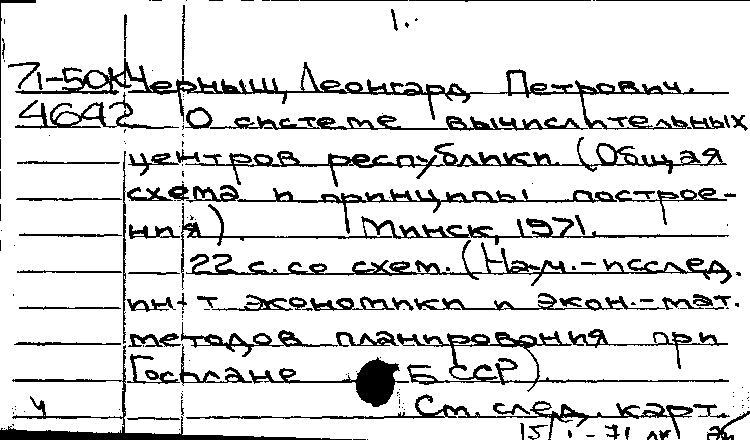 1.
71-50К Черныш, Леонгард Петрович.
4642 О системе вычислительных
центров республики. (Общая
схема и принципы построе-
ния). Минск, 1971.
22 с. со схем. (Науч.-исслед.
ин-т экономики и экон.-мат.
методов планирования при
Госплане БССР).
Ч См. след. карт.